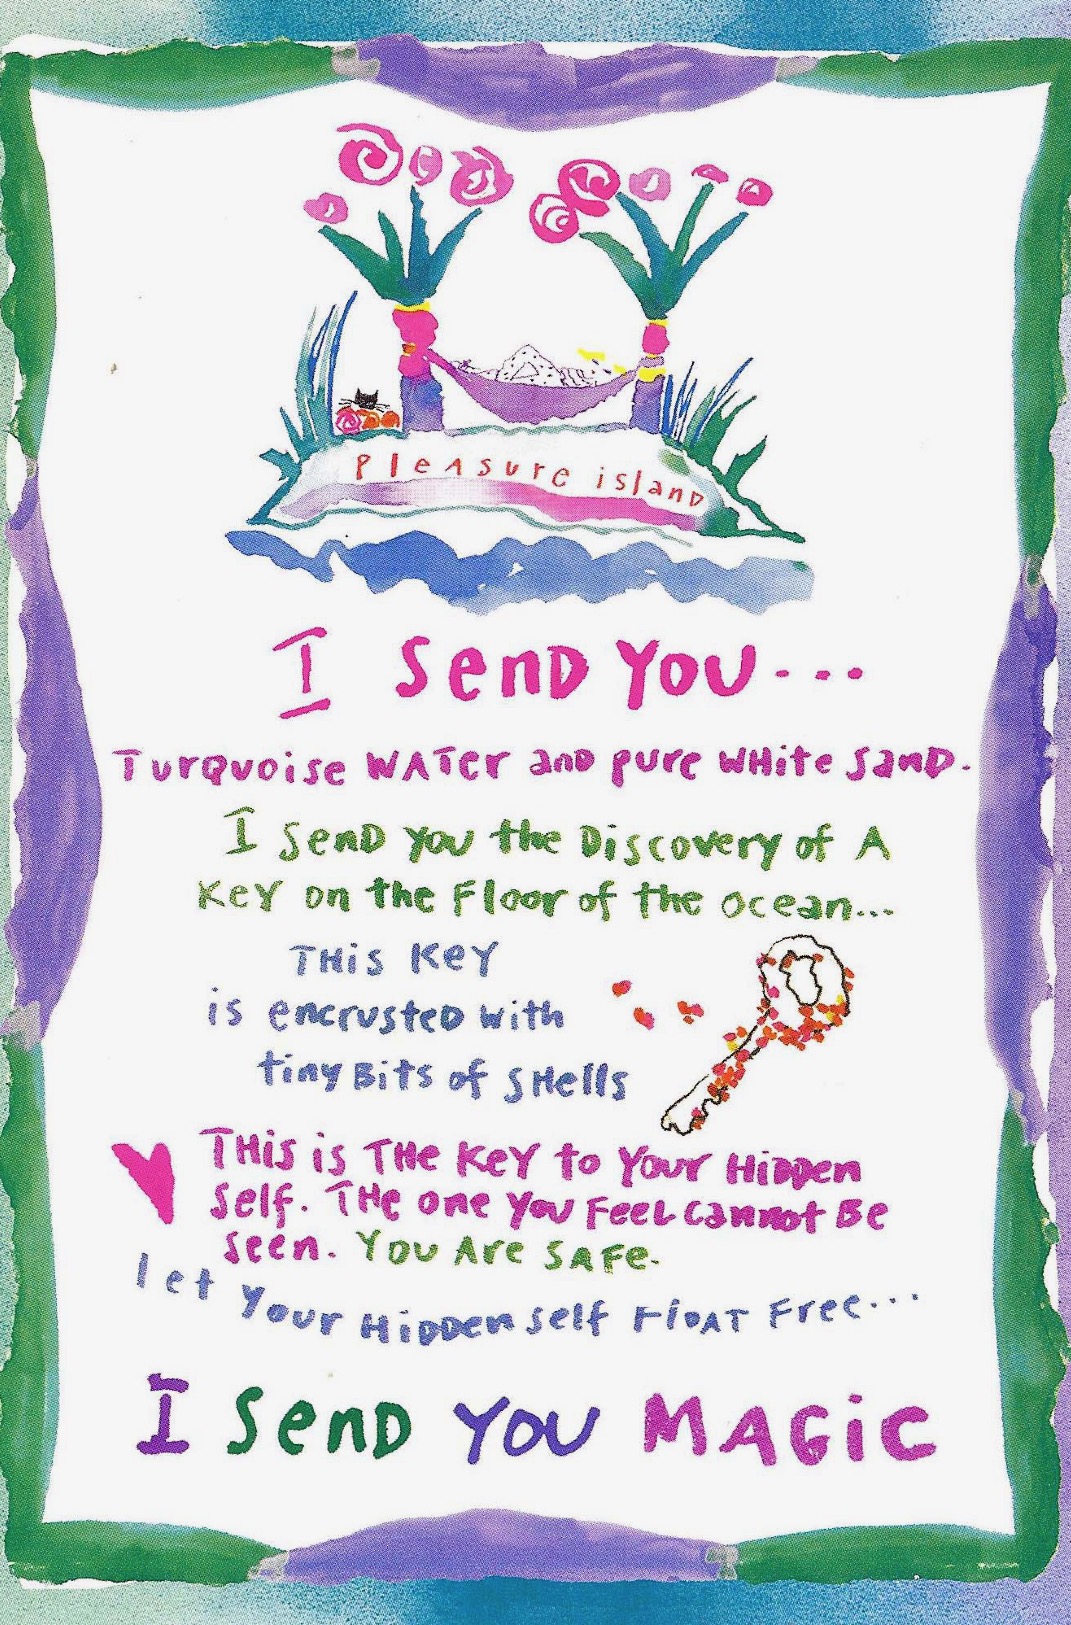 Pleasure island
I Send You...
Turquoise WATer and pure WHite SanD.
I SenD You the Discovery of A
Key on the Floor of the ocean...
THis Key
is encrusteD with
tiny Bits of SHells
THis is THe Key to Your HiDDen
Self. THe one You FeeL cannot Be
Seen. You Are SAFe.
let Your HiDDen self FloAT Free...
I SenD You MAGiC